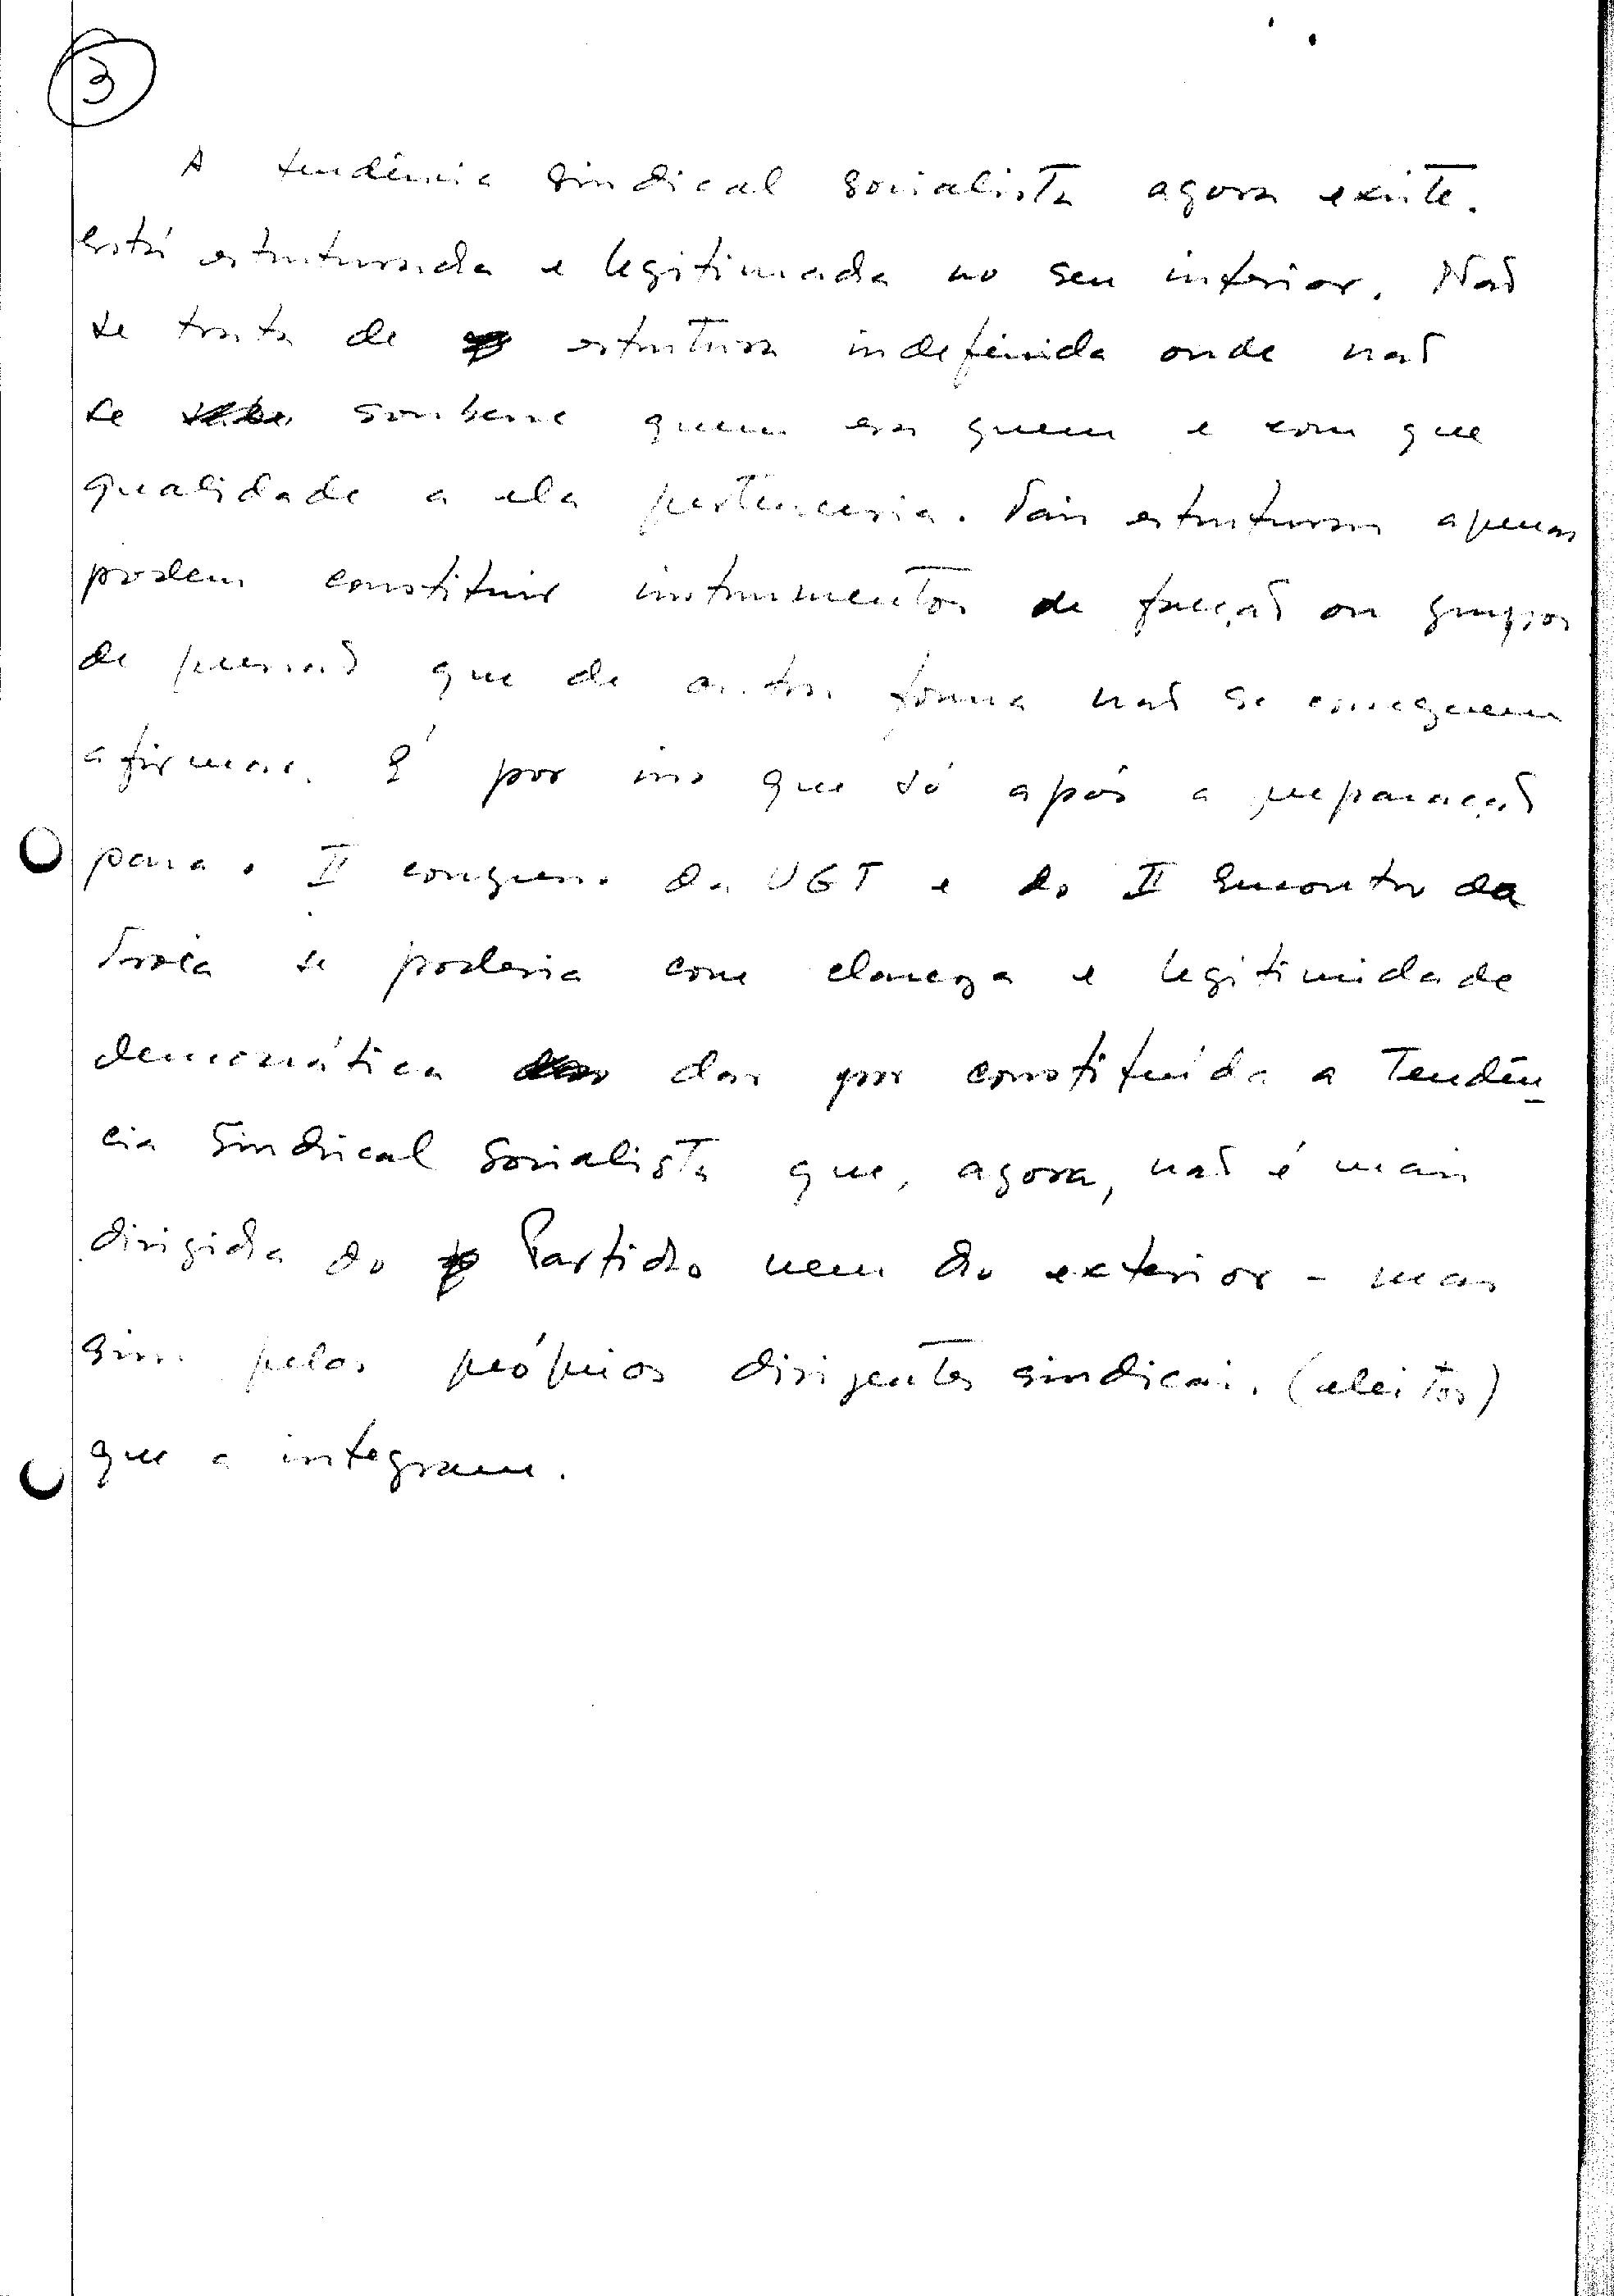 3
A tendência sindical socialista agora existe.
Está estruturada e legitimada no seu interior. Não
se trata de estrutura indefinida onde não
se soubesse quem era quem e com que
qualidade a ela pertenceria. Tais estruturas apenas
podem constituir instrumentos de facção ou grupos
de pressão que de outra forma não se conseguem
afirmar. É por isso que só após a preparação
para o II congresso da UGT e do II Encontro da
Troia se poderia com clareza e legitimidade
democrática dar por constituída a Tendên
cia Sindical Socialista que, agora, não é mais
dirigida do Partido nem do exterior - mas
sim pelos próprios dirigentes sindicais (eleitos)
que a integram.